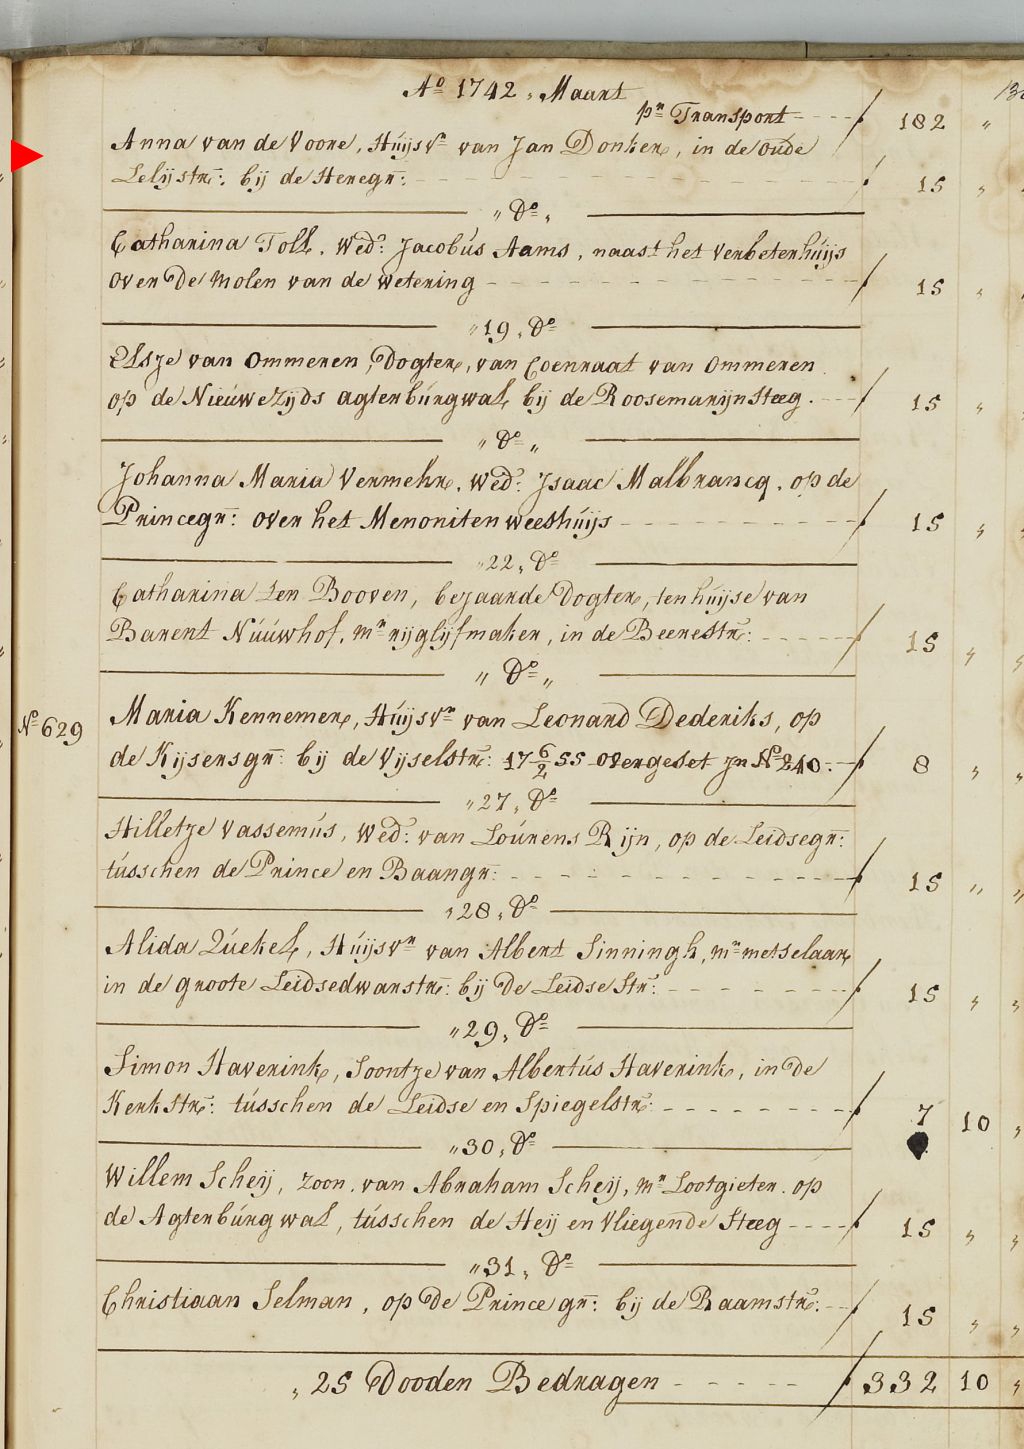 Ao 1742, Maart
pr Transport - - - - 182 "
Anna van de Voore, Húijsvr van Jan Donker, in de oude
Lelijstr: bij de Heregr: - - - 15 "
" Do "
Catharina Toll, Wed: Jacobús Aams, naast het Verbeterhúijs
over De Molen van de wetering - - - 15 "
" 19, Do
Elsje van Ommeren, Dogter, van Coenraat van Ommeren
op de Nieúwezijds agterbúrgwal bij de Roosemarijnsteeg. - - 15 "
" Do "
Johanna Maria Vermehr, Wed: Isaac Malbrancq, op de
Princegr: over het Menoniten weeshúijs - - - 15 "
" 22, Do
Catharina ten Booven, bejaarde Dogter, ten húijse van
Barent Núúwhof, mr rijglijfmaker, in de Beerestr: - - - 15 "
" Do "
No 629 Maria Kennemer, Húijsvr van Leonard Dederiks, op
de Kijsersgr: bij de Vijselstr: 17 6/2 55 overgeset in No 240. - - 8 "
" 27, Do
Hilletje Vassemús, Wed: van Loúrens Rijn, op de Leidsegr:
tússchen de Prince en Baangr: - - - 15 "
" 28, Do
Alida Qúekel, Húijsvr van Albert Sinningh, mr metselaar
in de groote Leidsedwarstr: bij De Leidse Str: - - - 15 "
" 29, Do
Simon Haverink, Soontje van Albertús Haverink, in De
Kerkstr: tússchen de Leidse en Spiegelstr: - - - 7 10 "
" 30, Do
Willem Scheij, zoon van Abraham Scheij, mr Lootgieter, op
de Agterbúrgwal, tússchen de Heij en Vliegende Steeg - - - 15 "
" 31, Do
Christiaan Selman, op De Prince gr: bij de Raamstr: - - 15 "
" 25 Dooden Bedragen - - - 332 10 "